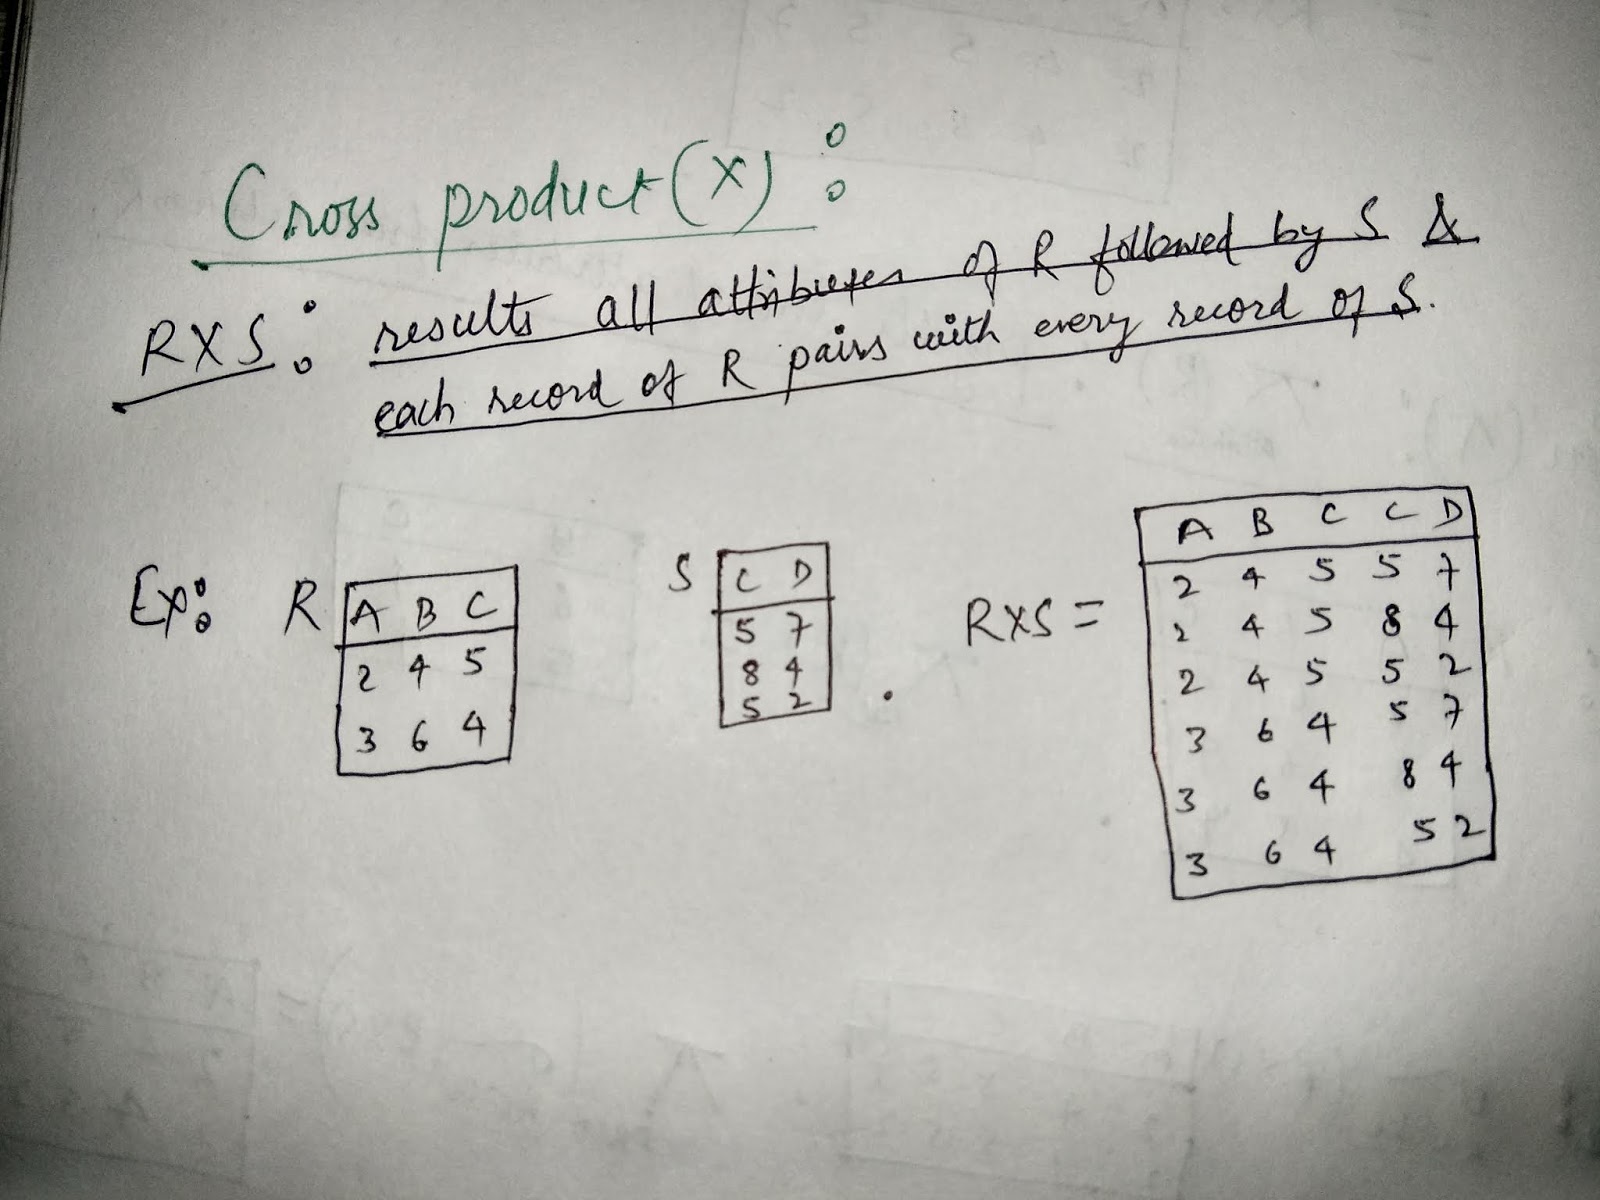 Cross product(X):
RXS: results all attributes of R followed by S &
each record of R pairs with every record of S.
Ex: R
A B C
2 4 5
3 6 4
S
C D
5 7
8 4
5 2
.
RXS =
A B C C D
2 4 5 5 7
2 4 5 8 4
2 4 5 5 2
3 6 4 5 7
3 6 4 8 4
3 6 4 5 2